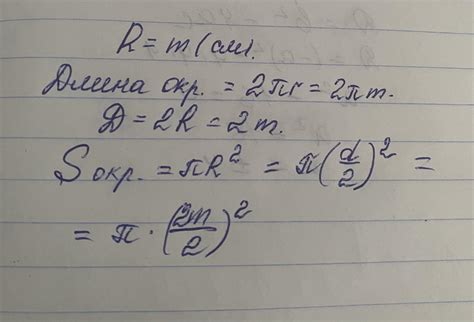 R = m (см).
Длина окр. = 2πr = 2πm.
D = 2R = 2m.
S окр. = πR² = π(d/2)² =
= π · (2m/2)²